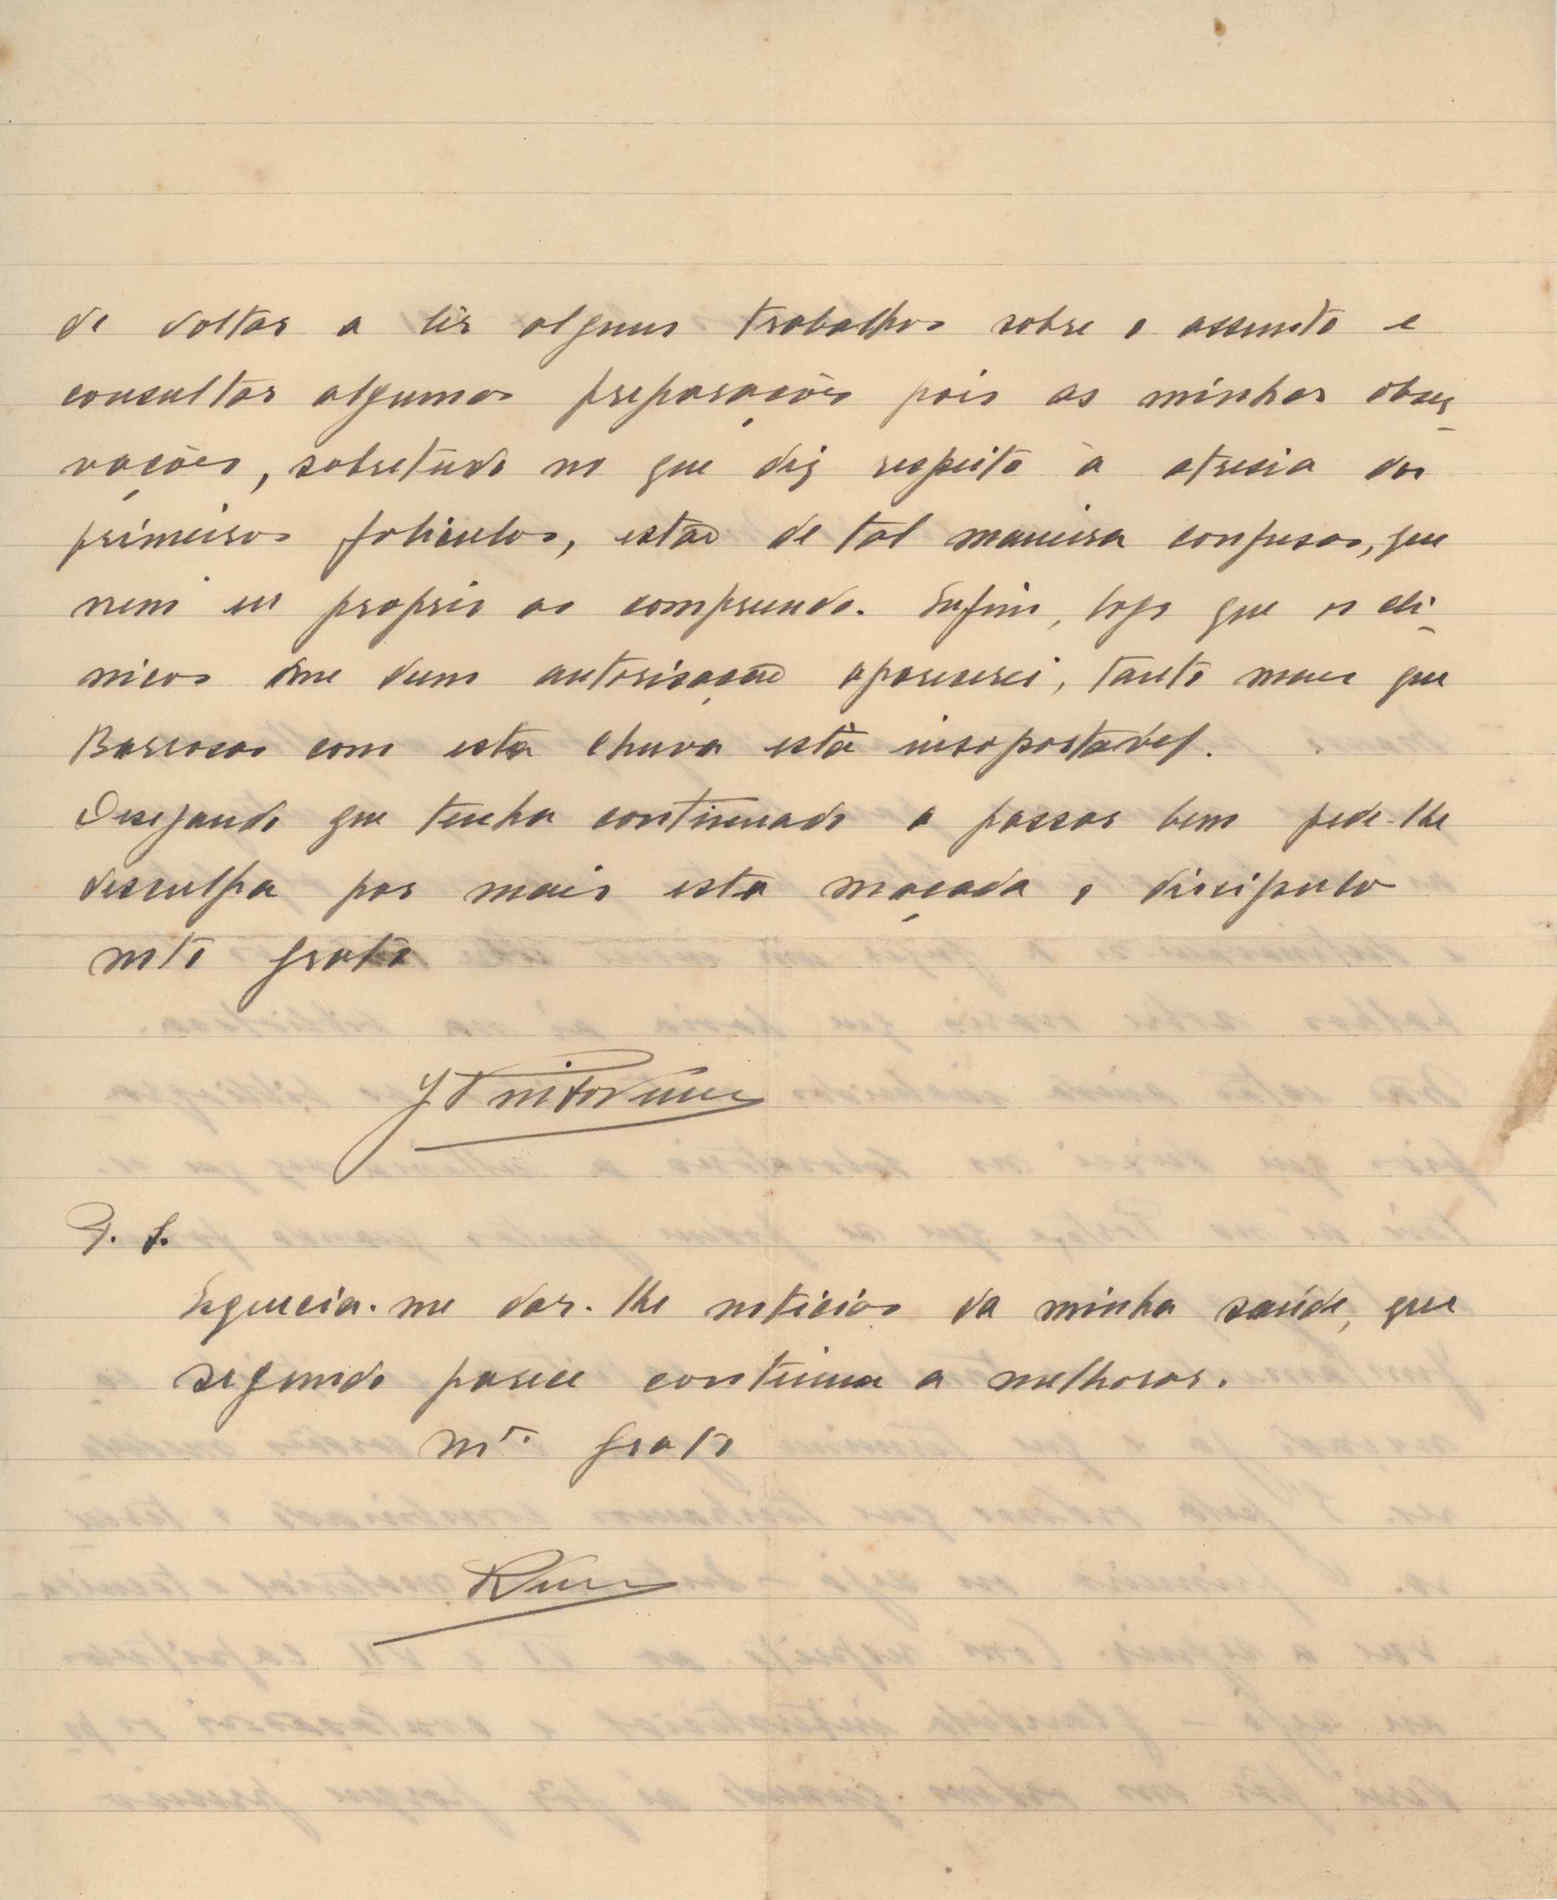 de voltar a lêr alguns trabalhos sobre o assunto e
consultar algumas preparações pois as minhas obser_
vações, sobretudo no que diz respeito à atresia dos
primeiros foliculos, estão de tal maneira confusas, que
nem eu proprio as comprendo. Enfim, logo que os cli_
nicos me dêm autorisação aparecerei, tanto mais que
Barrosas com esta chuva está insoportavel.
Desejando que tenha continuado a passar bem pede-lhe
desculpa por mais esta maçada o discipulo
mto grato
P. S.
Esquecia-me dar-lhe noticias da minha saúde, que
segundo parece continua a melhorar.
mto. grato